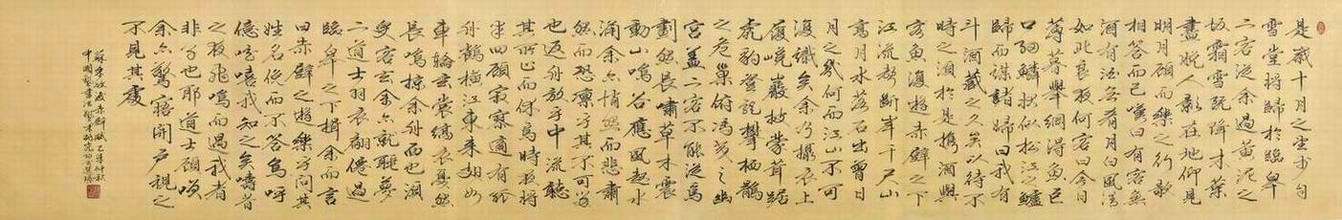 是歲十月之望步自
雪堂將歸於臨皋
二客從余過黃泥之
坂霜露既降木葉
盡脫人影在地仰見
明月顧而樂之行歌
相答而已嘆曰有客無
酒有酒無肴月白風清
如此良夜何客曰今日
薄暮舉網得魚巨
口細鱗狀似松江之鱸
歸而謀諸婦曰我有
斗酒藏之久矣以待不
時之須於是攜酒與
客魚復遊赤壁之下
江流有聲斷岸千尺山
高月水落石出曾日
月之幾何而江山不可
復識矣余乃攝衣上
履巉巖披蒙茸踞
虎豹登虯攀棲鶻
之危巢俯馮夷之幽
宮蓋二客不能從焉
劃然長嘯草木震
動山鳴谷應風起水
涌余亦悄然而悲肅
然而恐凜乎其不可留
也返舟放乎中流聽
其所止而休焉時夜將
半四顧寂寥適有孤
舟鶴橫江東來翅如
車輪玄裳縞衣戛然
長鳴掠余舟而西須
臾客去余亦就睡夢
二道士羽衣翩僊過
臨皋之下揖余而言
曰赤壁之遊樂乎問其
姓名俛而不答嗚呼
噫嘻我知之矣疇昔
之夜飛鳴而過我者
非子也耶道士顧嘆
余亦驚悟開戶視之
不見其處
蘇東坡後赤壁賦